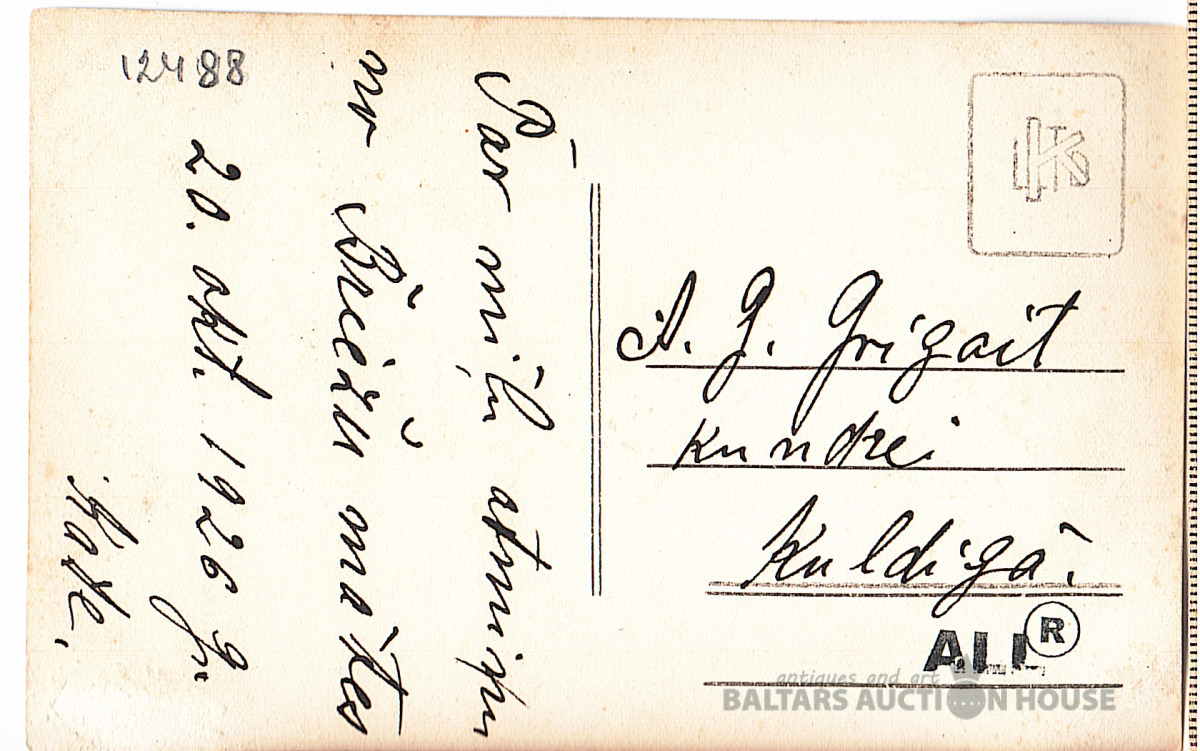 12488
Par mīļu atmiņu
no Briežu mātes
20. okt. 1926 g.
A. G. Grigait
kundzei
Kuldīgā.
ALL ®
antiques and art
BALTARS AUCTION HOUSE